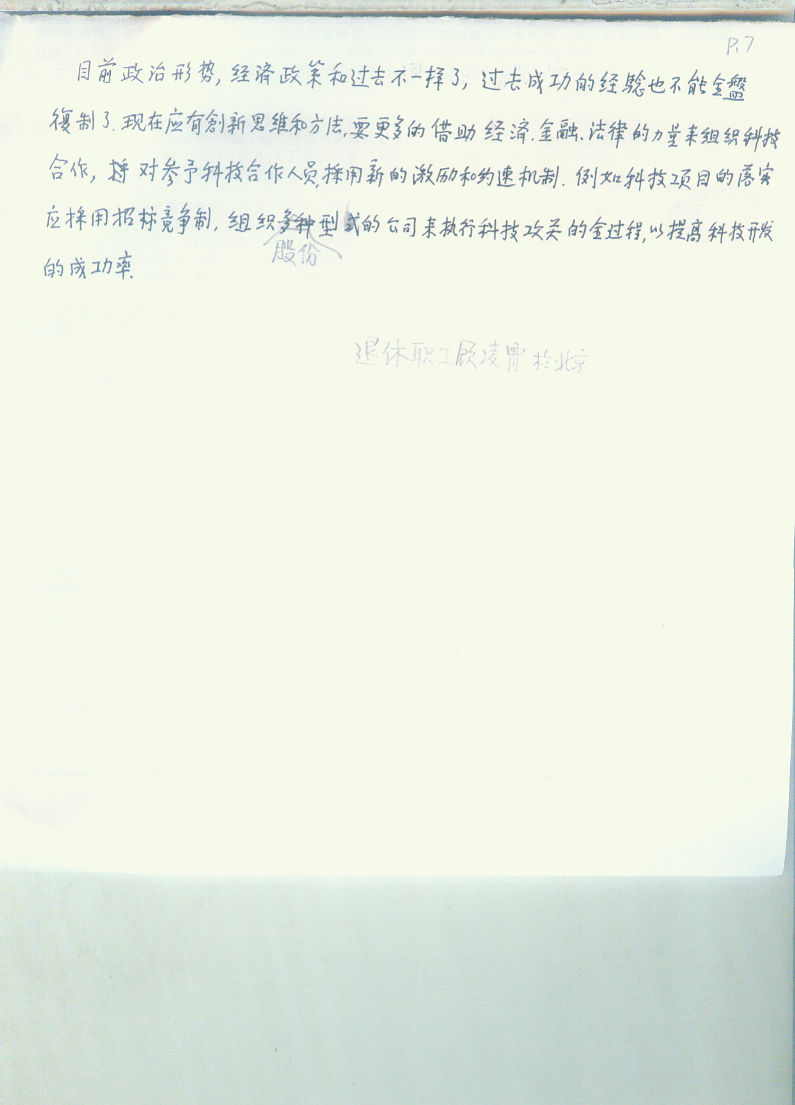 P.7
目前政治形势,经济政策和过去不一样了,过去成功的经验也不能全盤
復制了.现在应有創新思维和方法,要更多的借助经济.金融.法律的力量来组织科技
合作,将对参予科技合作人员,採用新的激励和约速机制.例如科技项目的落实
应採用招标竞争制,组织多种型式的公司来执行科技攻关的全过程,以提高科技开发
股份
的成功率.
退休职工顾凌霄於北京